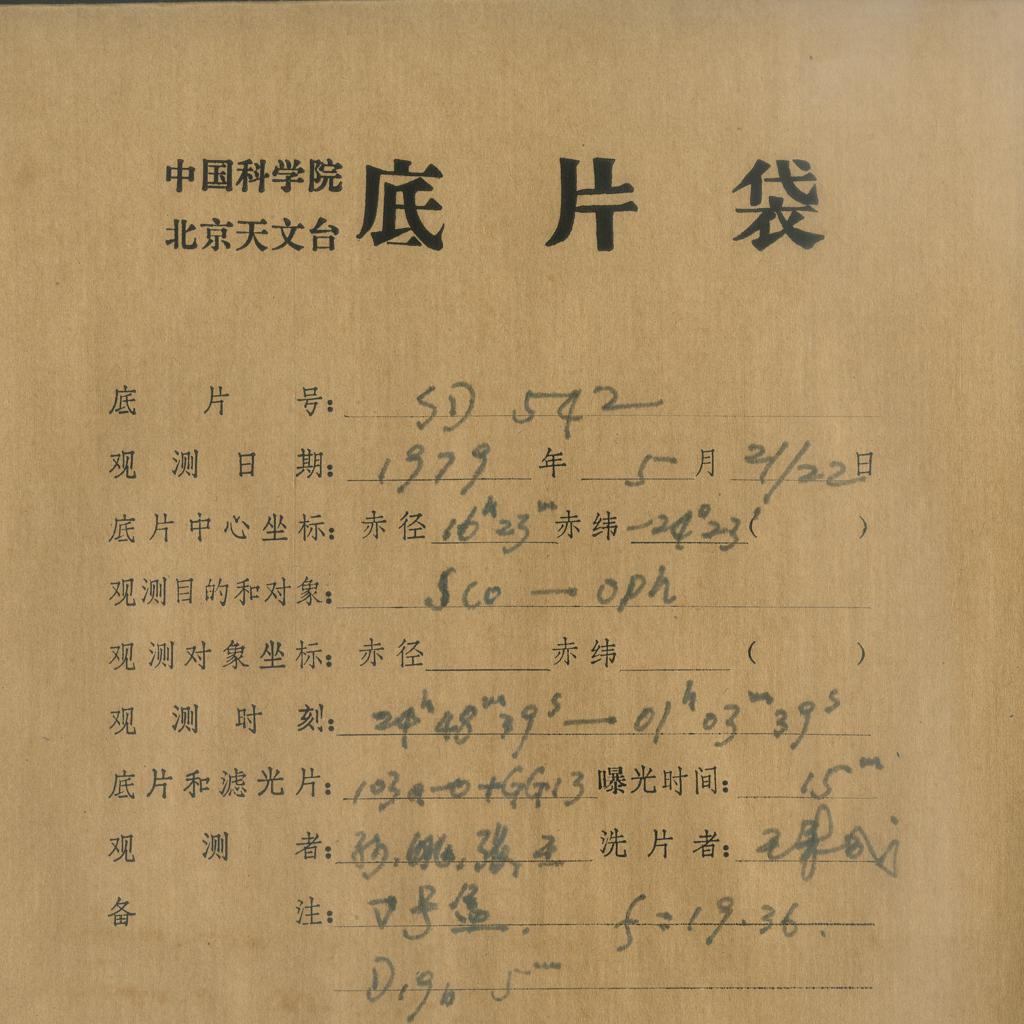 中国科学院
北京天文台
底片袋
底片号: SD 542
观测日期: 1979年 5月 21/22日
底片中心坐标: 赤径 16ʰ23ᵐ 赤纬 -24°23′( )
观测目的和对象: Sco — oph
观测对象坐标: 赤径 赤纬 ( )
观测时刻: 24ʰ48ᵐ39ˢ — 01ʰ03ᵐ39ˢ
底片和滤光片: 103a-O+GG13 曝光时间: 15ᵐ
观测者: 张, 王 洗片者: 王
备注: 号盒. f=19.36.
D19b 5ᵐ